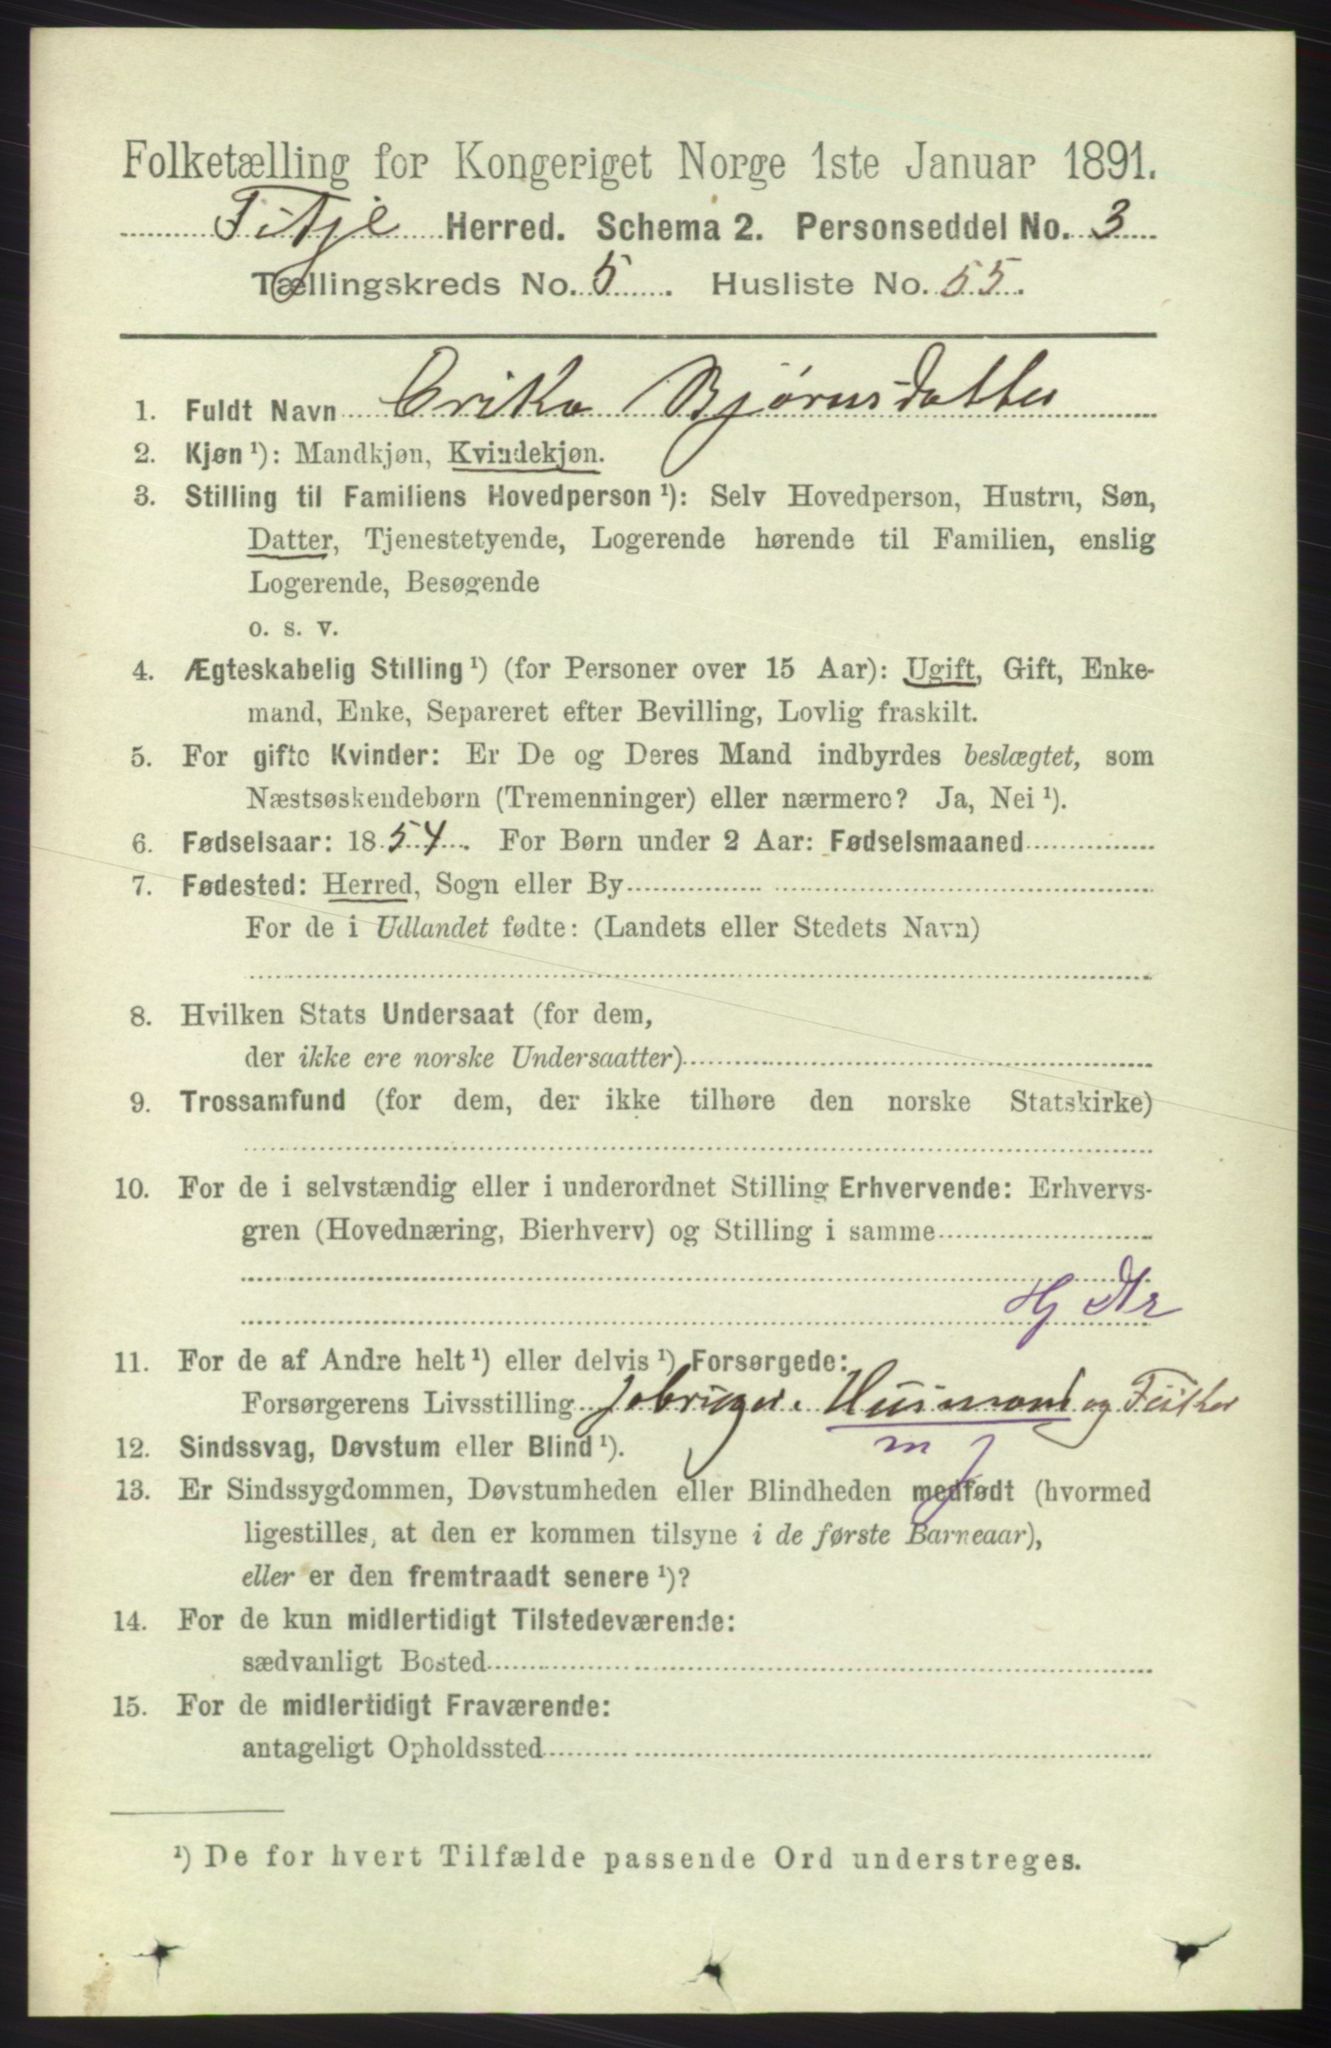 Folketælling for Kongeriget Norge 1ste Januar 1891.
Fitje Herred. Schema 2. Personseddel No. 3
Tællingskreds No. 5. Husliste No. 55.
1. Fuldt Navn Erika Bjørnsdatter
2. Kjøn ¹): Mandkjøn, Kvindekjøn.
3. Stilling til Familiens Hovedperson ¹): Selv Hovedperson, Hustru, Søn,
Datter, Tjenestetyende, Logerende hørende til Familien, enslig
Logerende, Besøgende
o. s. v.
4. Ægteskabelig Stilling ¹) (for Personer over 15 Aar): Ugift, Gift, Enke-
mand, Enke, Separeret efter Bevilling, Lovlig fraskilt.
5. For gifte Kvinder: Er De og Deres Mand indbyrdes beslægtet, som
Næstsøskendebørn (Tremenninger) eller nærmere? Ja, Nei ¹).
6. Fødselsaar: 1854. For Børn under 2 Aar: Fødselsmaaned
7. Fødested: Herred, Sogn eller By
For de i Udlandet fødte: (Landets eller Stedets Navn)
8. Hvilken Stats Undersaat (for dem,
der ikke ere norske Undersaatter)
9. Trossamfund (for dem, der ikke tilhøre den norske Statskirke)
10. For de i selvstændig eller i underordnet Stilling Erhvervende: Erhvervs-
gren (Hovednæring, Bierhverv) og Stilling i samme
11. For de af Andre helt ¹) eller delvis ¹) Forsørgede:
Forsørgerens Livsstilling Husmand og Fisker
m j
12. Sindssvag, Døvstum eller Blind ¹).
13. Er Sindssygdommen, Døvstumheden eller Blindheden medfødt (hvormed
ligestilles, at den er kommen tilsyne i de første Barneaar),
eller er den fremtraadt senere ¹)?
14. For de kun midlertidigt Tilstedeværende:
sædvanligt Bosted
15. For de midlertidigt Fraværende:
antageligt Opholdssted
¹) De for hvert Tilfælde passende Ord understreges.